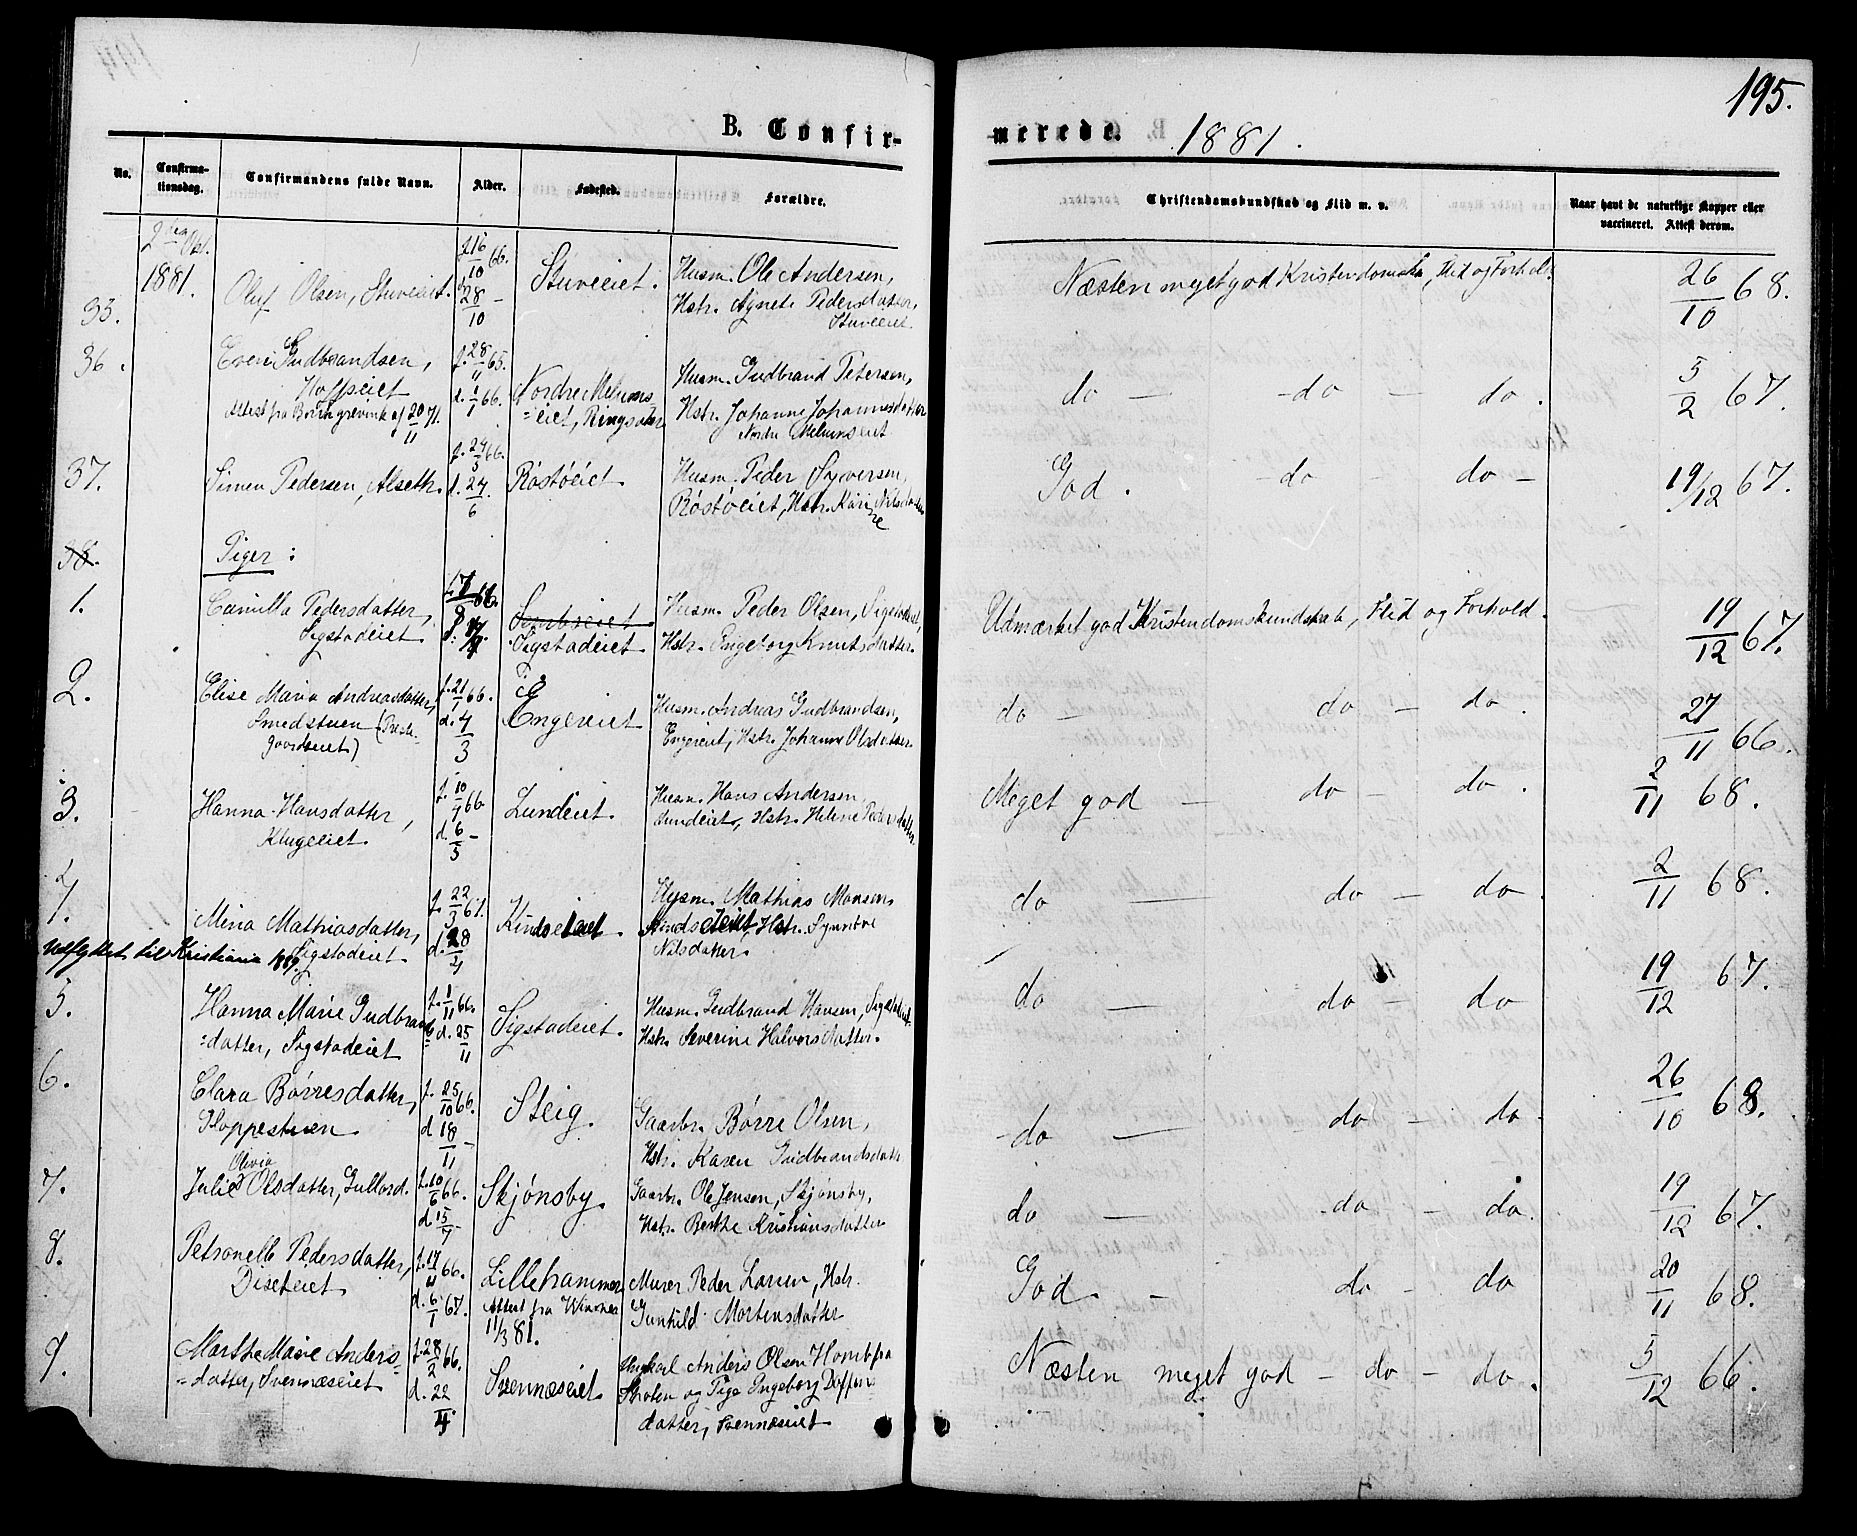 195.
B. Confir-
merede.
1881.
No.
Confirma-
tionsdag.
Confirmandens fulde Navn.
Alder.
Fødested.
Forældre.
Christendomskundskab og Flid m. v.
Naar havt de naturlige Kopper eller
vaccineret. Attest derom.
2den Okt.
1881.
35.
Oluf Olsen, Stuveeiet.
f. 16/10 66.
d. 28/10 –
Stuveeiet.
Husm. Ole Andersen,
Hstr. Agnete Pedersdatter,
Stuveeiet.
Næsten meget god Kristendomsk., Flid og Forhold.
26/10 68.
36.
Even Gudbrandsen,
Hoffseiet
Attest fra 20/11 71.
f. 28/11 65.
d. 1/1 66.
Nordre Melums-
=eiet, Ringsaker
Husm. Gudbrand Petersen,
Hstr. Johanne Johannesdatter
Nordre Melumseiet
do — do — do.
5/2 67.
37.
Simen Pedersen, Alseth.
f. 24/5 66.
d. 24/6
Röstöeiet.
Husm. Peder Syversen,
Röstöeiet, Hstr. Karine Nilsdatter
God. – do – do –
19/12 67.
38.
Piger:
1.
Camilla Pedersdatter,
Sigstadeiet.
Sigstadeiet.
Husm. Peder Olsen, Sigstadeiet,
Hstr. Engeborg Knutsdatter.
Udmærket god Kristendomskundskab, Flid og Forhold.
19/12 67.
2.
Elise Maria Andreasdatter,
Smedstuen (Preste-
gaardseiet)
f. 21/1 66.
d. 4/3
Engereiet
Husm. Andreas Gudbrandsen,
Engereiet, Hstr. Johanne Olsdatter.
do — do — do.
27/11 66.
3.
Hanna Hansdatter,
Klugeeiet.
f. 10/4 66
d. 6/5 –
Lundeiet.
Husm. Hans Andersen
Lundeiet, Hstr. Helene Pedersdatter.
Meget god — do — do.
2/11 68.
4.
Mina Mathiasdatter,
Sigstadeiet.
Udflyttet til Kristiania 1889.
f. 22/3 67.
d. 28/4
Kindseteiet.
Husm. Mathias Monsen,
Kindseteiet, Hstr. Synnöve
Nilsdatter.
do — do — do
2/11 68.
5.
Hanna Marie Gudbrands-
=datter, Sigstadeiet
f. 1/11 66.
d. 25/11
Sigstadeiet.
Husm. Gudbrand Hansen, Sigstadeiet.
Hstr. Severine Halvorsdatter.
do — do — do
19/12 67.
6.
Clara Börresdatter,
Kloppestuen
f. 25/10 66.
d. 18/11 –
Steig.
Gaarbr. Börre Olsen,
Hstr. Karen Gudbrandsdatter
do — do — do.
26/10 68.
7.
Julie Olivia Olsdatter, Gullord.
f. 10/6 66.
d. 15/7 –
Skjönsby.
Gaarbr. Ole Jensen, Skjönsby,
Hstr. Berthe Kristiansdatter
do — do — do.
19/12 67.
8.
Petronelle Pedersdatter,
Diseteiet.
f. 14/11 66.
d. 6/1 67.
Lillehammer
Attest fra
11/3 81.
Murer Peder Larsen, Hstr.
Gunhild Mortensdatter
God. — do — do
20/11 68.
9.
Marthe Marie Anders-
=datter, Svennæseiet
f. 28/2 66.
d. 22/4
Svennæseiet.
Ungkarl Anders Olsen Hornt fra
og Pige Ingeborg
datter, Svennæseiet
Næsten meget god – do – do.
5/12 66.